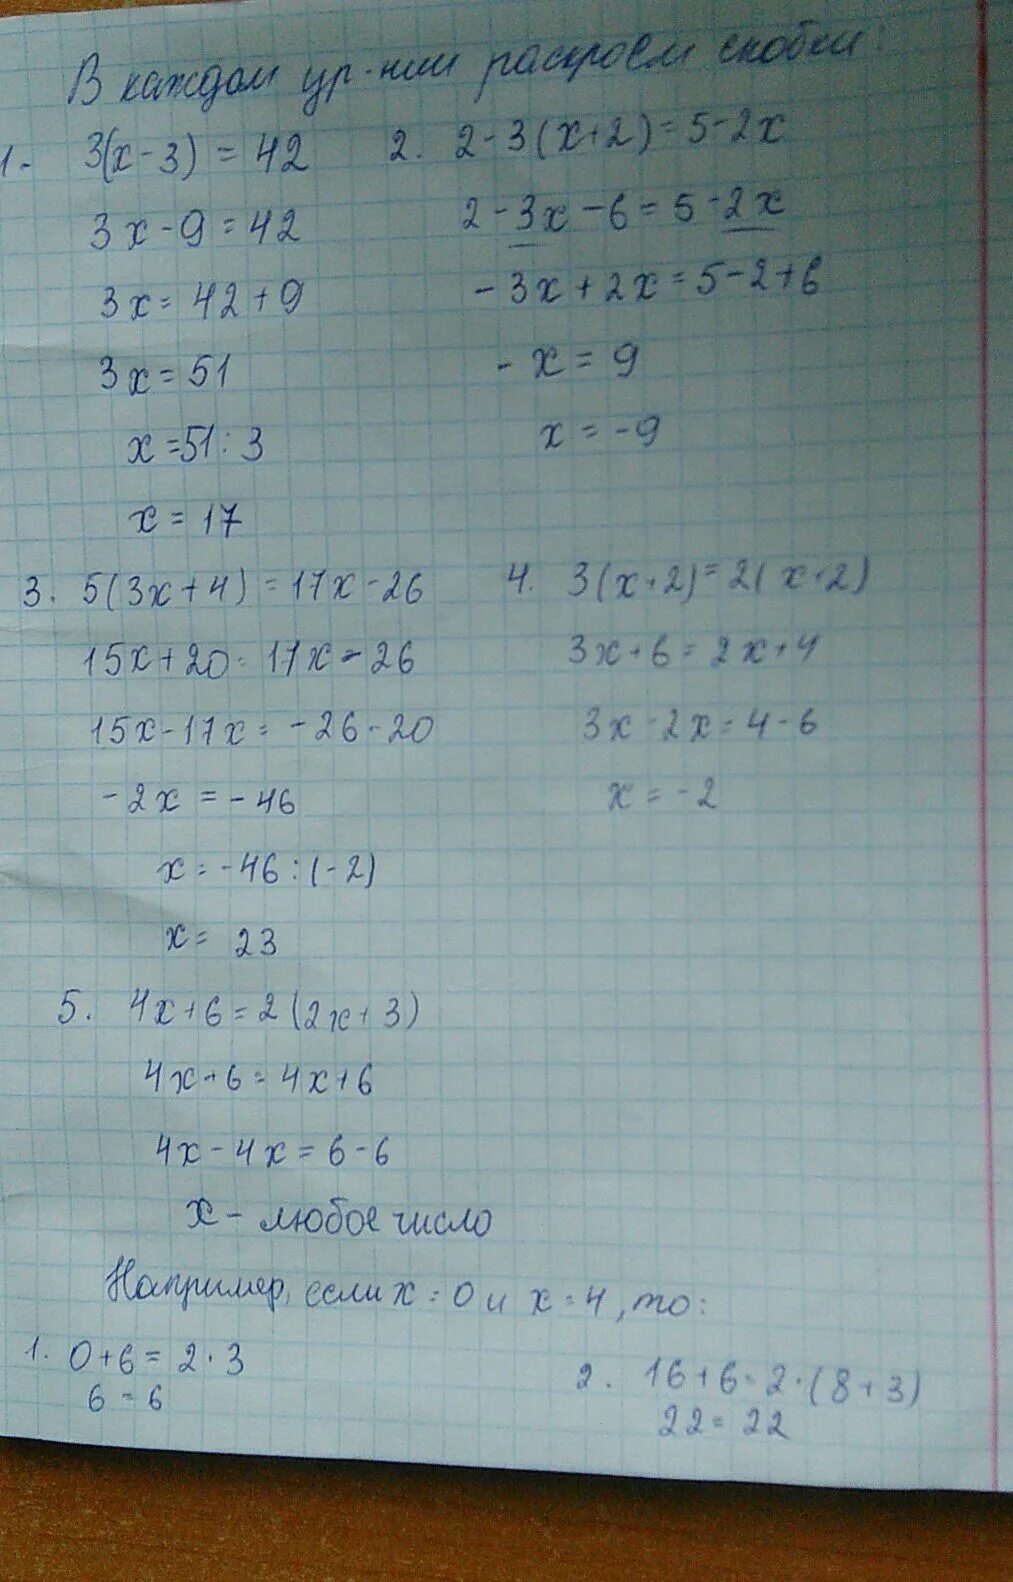 В каждом ур-нии раскроем скобки:
1. 3(x-3) = 42
3x-9=42
3x=42+9
3x=51
x=51:3
x=17
2. 2-3(x+2)=5-2x
2-3x-6=5-2x
-3x+2x=5-2+6
-x=9
x=-9
3. 5(3x+4)=17x-26
15x+20=17x-26
15x-17x=-26-20
-2x=-46
x=-46:(-2)
x= 23
4. 3(x+2)=2(x+2)
3x+6=2x+4
3x-2x=4-6
x=-2
5. 4x+6=2(2x+3)
4x+6=4x+6
4x-4x=6-6
x - любое число
Например, если x=0 и x=4, то:
1. 0+6=2·3
6=6
2. 16+6=2·(8+3)
22=22